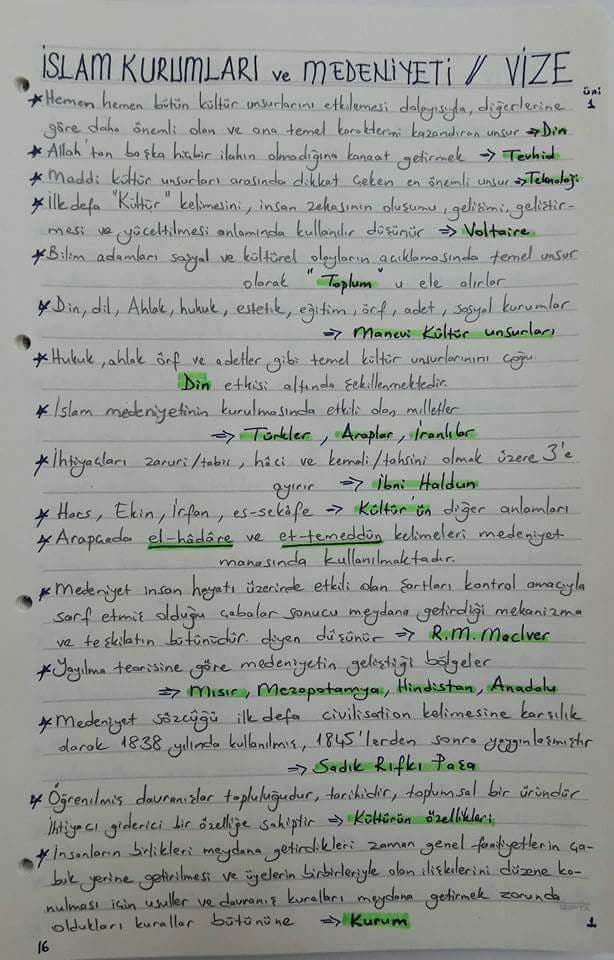 İSLAM KURUMLARI ve MEDENİYETİ // VİZE
üni
1
* Hemen hemen bütün kültür unsurlarını etkilemesi dolayısıyla, diğerlerine
göre daha önemli olan ve ana temel karakterini kazandıran unsur ⇒ Din
* Allah'tan başka hiçbir ilahın olmadığına kanaat getirmek ⇒ Tevhid
* Maddi kültür unsurları arasında dikkat çeken en önemli unsur ⇒ Teknoloji
* İlk defa "Kültür" kelimesini, insan zekasının oluşumu, gelişimi, geliştir-
mesi ve yüceltilmesi anlamında kullanılır düşünür ⇒ Voltaire
* Bilim adamları sosyal ve kültürel olayların açıklamasında temel unsur
olarak "Toplum" u ele alırlar
* Din, dil, Ahlak, hukuk, estetik, eğitim, örf, adet, sosyal kurumlar
⇒ Manevi Kültür unsurları
* Hukuk, ahlak örf ve adetler gibi temel kültür unsurlarının çoğu
Din etkisi altında şekillenmektedir.
* İslam medeniyetinin kurulmasında etkili olan milletler
⇒ Türkler, Araplar, İranlılar
* İhtiyaçları zaruri/tabii, hâci ve kemali/tahsini olmak üzere 3'e
ayırır ⇒ İbni Haldun
* Hars, Ekin, İrfan, es-sekâfe ⇒ Kültür'ün diğer anlamları
* Arapçada el-hâdâre ve et-temeddün kelimeleri medeniyet
manasında kullanılmaktadır.
* Medeniyet insan hayatı üzerinde etkili olan şartları kontrol amacıyla
sarf etmiş olduğu çabalar sonucu meydana getirdiği mekanizma
ve teşkilatın bütünüdür diyen düşünür ⇒ R.M. Maclver
* Yayılma teorisine göre medeniyetin geliştiği bölgeler
⇒ Mısır, Mezopotamya, Hindistan, Anadolu
* Medeniyet sözcüğü ilk defa civilisation kelimesine karşılık
olarak 1838 yılında kullanılmış, 1845'lerden sonra yaygınlaşmıştır
⇒ Sadık Rıfkı Paşa
* Öğrenilmiş davranışlar topluluğudur, tarihidir, toplumsal bir üründür
İhtiyacı giderici bir özelliğe sahiptir ⇒ Kültürün özellikleri
* İnsanların birlikleri meydana getirdikleri zaman genel faaliyetlerin ça-
buk yerine getirilmesi ve üyelerin birbirleriyle olan ilişkilerini düzene ko-
nulması için usuller ve davranış kuralları meydana getirmek zorunda
oldukları kurallar bütününe ⇒ Kurum
1
16